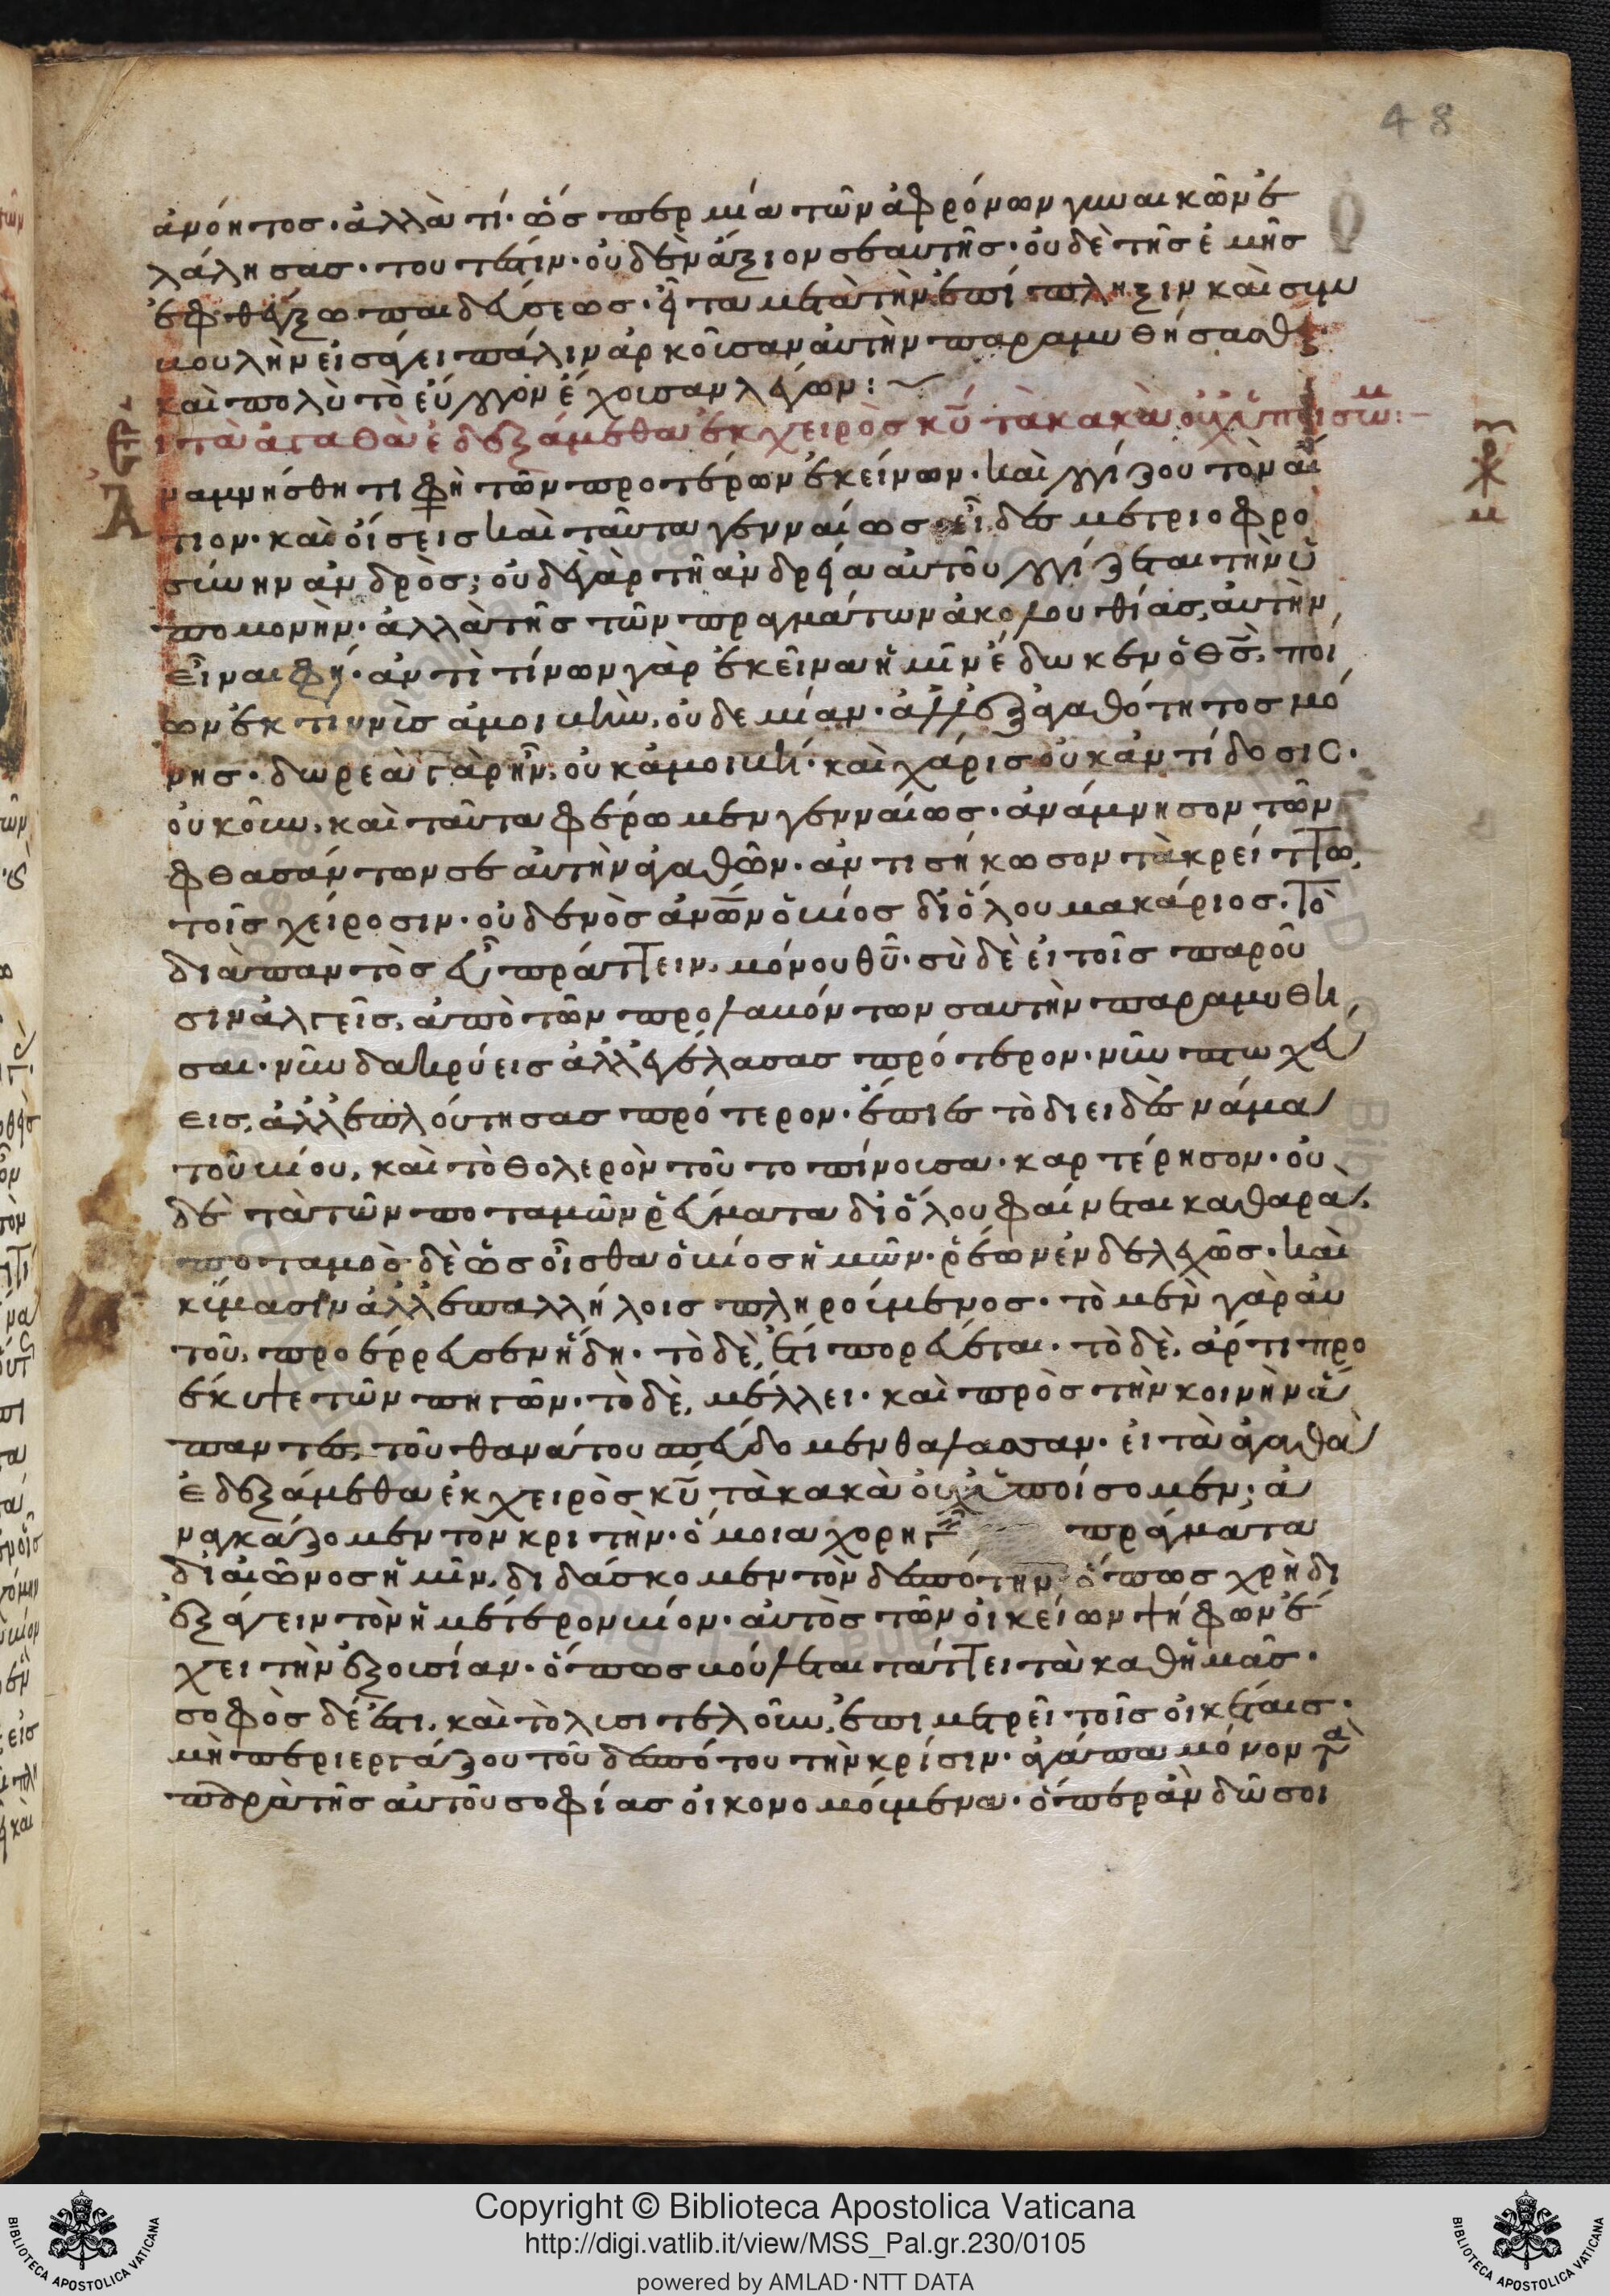 48
ἀνόητος· ἀλλὰ τί· ὥσπερ μία τῶν ἀφρόνων γυναικῶν ἐ
λάλησας· τουτέστιν· οὐδὲν ἄξιον σεαυτῆς· οὐδὲ τῆς ἐμῆς
ἐφθέγξω παιδεύσεως· εἶτα μετὰ τὴν ἐπίπληξιν καὶ συμ
βουλὴν εἰσάγει πάλιν ἀρκοῦσαν αὐτὴν παραμυθήσασθαι
καὶ πολὺ τὸ εὔλογον ἔχουσαν λέγων:
ι τὰ ἀγαθὰ ἐδεξάμεθα ἐκ χειρὸς κυ τὰ κακὰ οὐχ ὑποίσωμ:
ναμνήσθητι φὴ τῶν προτέρων ἐκείνων· καὶ λογίζου τὸν αἴ
τιον· καὶ οἴσεις καὶ ταῦτα γενναίως· εἶδες μετριοφρο
σύνην ἀνδρὸς; οὐδὲ γὰρ τῇ ἀνδρείᾳ αὐτοῦ λογίζεται τὴν ὑ
πομονὴν· ἀλλὰ τῆς τῶν πραγμάτων ἀκολουθίας, αὐτὴν
εἶναι φη· ἀντὶ τίνων γὰρ ἐκεῖνα ἡμῖν ἔδωκεν ὁ θς, ποί
ων ἐκτιννὺς ἀμοιβὴν, οὐδεμίαν· ἀλλ' ἐξ ἀγαθότητος μό
νης· δωρεὰ γὰρ ἦν, οὐκ ἀμοιβή· καὶ χάρις οὐκ ἀντίδοσις·
οὐκοῦν, καὶ ταῦτα φέρωμεν γενναίως· ἀνάμνησον τῶν
φθασάντων σεαυτὴν ἀγαθῶν· ἀντισήκωσον τὰ κρείττω,
τοῖς χείροσιν· οὐδενὸς ἀνων ὁ βίος δι' ὅλου μακάριος. Τὸ
διὰ παντὸς εὖ πράττειν, μόνου θυ· σὺ δὲ εἰ τοῖς παροῦ
σιν ἀλγεῖς, ἀπὸ τῶν προλαβόντων σαυτὴν παραμυθη
σαι· νῦν δακρύεις ἀλλ' ἐγέλασας πρότερον· νῦν πτωχεύ
εις, ἀλλ' ἐπλούτησας πρότερον· ἔπιες τὸ διειδὲς νάμα
τοῦ βίου, καὶ τὸ θολερὸν τοῦτο πίνουσα· καρτέρησον· οὐ
δὲ τὰ τῶν ποταμῶν ῥεύματα δι' ὅλου φαίνεται καθαρὰ·
ποταμὸς δὲ ὡς οἶσθα ὁ βίος ἡμῶν· ῥέων ἐνδελεχῶς· καὶ
κύμασιν ἀλλεπαλλήλοις πληρούμενος· τὸ μὲν γὰρ αὐ
τοῦ, προέρρευσεν ἤδη· τὸ δὲ, ἔτι πορεύεται· τὸ δὲ, ἄρτι προ
έκυψε τῶν πηγῶν· τὸ δὲ, μέλλει· καὶ πρὸς τὴν κοινὴν ἅ
παντες, τοῦ θανάτου σπεύδομεν θάλασσαν· εἰ τὰ ἀγαθὰ
ἐδεξάμεθα ἐκ χειρὸς κυ τὰ κακὰ οὐχ ὑποίσομεν; ἀ
ναγκάζομεν τὸν κριτὴν· ὅμοια χορηγ πράγματα
δι' αἰῶνος ἡμῖν, διδάσκομεν τὸν δεσπότην ὅπως χρὴ δι
εξάγειν τὸν ἡμέτερον βίον· αὐτὸς τῶν οἰκείων ψήφων ἔ
χει τὴν ἐξουσίαν· ὅπως βούλεται τάττει τὰ καθ' ἡμᾶς·
σοφὸς δέ ἐστι, καὶ τὸ λυσιτελοῦν, ἐπιμετρεῖ τοῖς οἰκέταις·
μὴ περιεργάζου τοῦ δεσπότου τὴν κρίσιν· ἀγάπα μόνον τὰ
παρὰ τῆς αὐτοῦ σοφίας οἰκονομούμενα· ὅπερ ἂν δῷ σοι
Copyright © Biblioteca Apostolica Vaticana
http://digi.vatlib.it/view/MSS_Pal.gr.230/0105
powered by AMLAD·NTT DATA
BIBLIOTECA APOSTOLICA VATICANA
BIBLIOTECA APOSTOLICA VATICANA